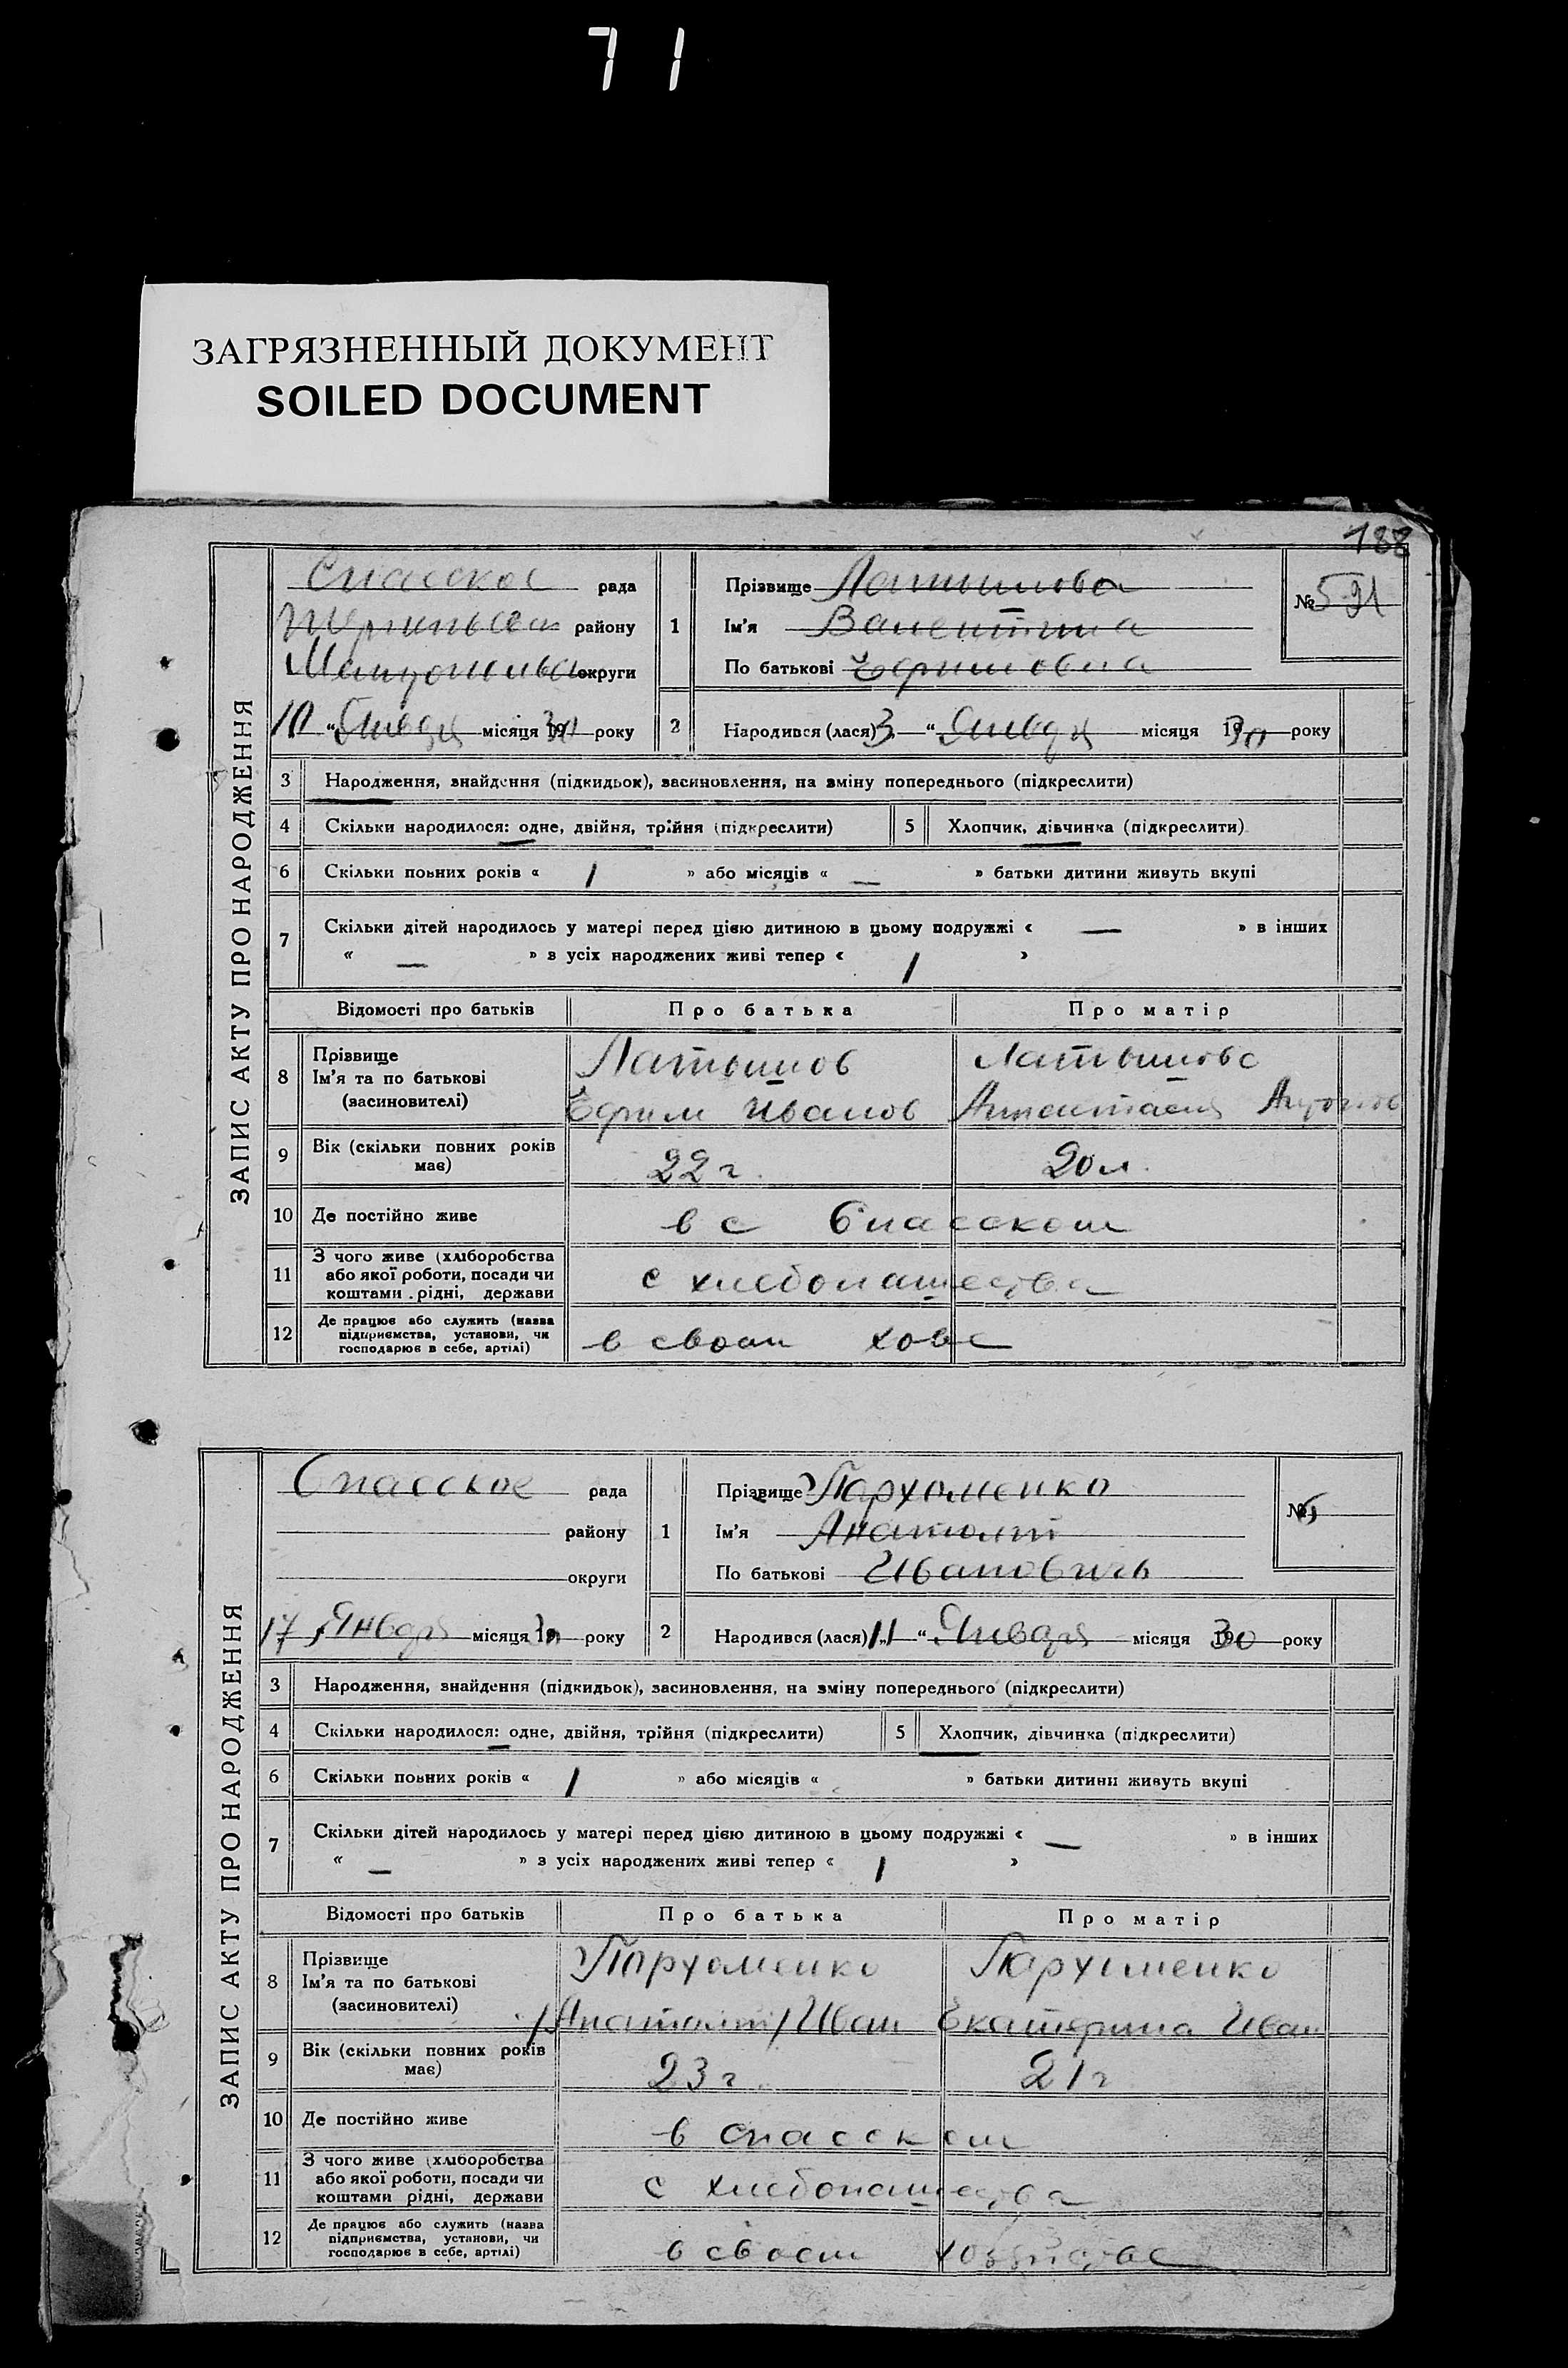 71
ЗАГРЯЗНЕННЫЙ ДОКУМЕНТ
SOILED DOCUMENT
188
ЗАПИС АКТУ ПРО НАРОДЖЕННЯ
Спасское рада
району
округи
10 “ Января місяця 1930 року
1
Прізвище Латышова
Ім’я Валентина
По батькові Ефимовна
№
2 Народився (лася) 3 “ Января місяця 1930 року
3 Народження, знайдення (підкидьок), засиновлення, на зміну попереднього (підкреслити)
4 Скільки народилося: одне, двійня, трійня (підкреслити) 5 Хлопчик, дівчинка (підкреслити)
6 Скільки повних років « 1 » або місяців « — » батьки дитини живуть вкупі
7 Скільки дітей народилось у матері перед цією дитиною в цьому подружжі « — » в інших
« — » з усіх народжених живі тепер « 1 »
Відомості про батьків Про батька Про матір
8 Прізвище
Ім’я та по батькові
(засиновителі)
Латышов
Ефим Иванов
Латышова
9 Вік (скільки повних років має) 22 г. 20 л.
10 Де постійно живе в с Спасском
11 З чого живе (хліборобства або якої роботи, посади чи коштами рідні, держави с хлебопашества
12 Де працює або служить (назва підприємства, установи, чи господарює в себе, артілі) в своем
ЗАПИС АКТУ ПРО НАРОДЖЕННЯ
Спасское рада
району
округи
17 “ Января місяця 1930 року
1
Прізвище Пархоменко
Ім’я Анатолий
По батькові Ивановичь
№
2 Народився (лася) 11 “ Января місяця 1930 року
3 Народження, знайдення (підкидьок), засиновлення, на зміну попереднього (підкреслити)
4 Скільки народилося: одне, двійня, трійня (підкреслити) 5 Хлопчик, дівчинка (підкреслити)
6 Скільки повних років « 1 » або місяців « » батьки дитини живуть вкупі
7 Скільки дітей народилось у матері перед цією дитиною в цьому подружжі « — » в інших
« — » з усіх народжених живі тепер « 1 »
Відомості про батьків Про батька Про матір
8 Прізвище
Ім’я та по батькові
(засиновителі)
Пархоменко
/Анатолий/ Иван
Пархоменко
Екатерина Иван
9 Вік (скільки повних років має) 23 г. 21 г
10 Де постійно живе в Спасском
11 З чого живе (хліборобства або якої роботи, посади чи коштами рідні, держави с хлебопашества
12 Де працює або служить (назва підприємства, установи, чи господарює в себе, артілі) в своем хозяйстве